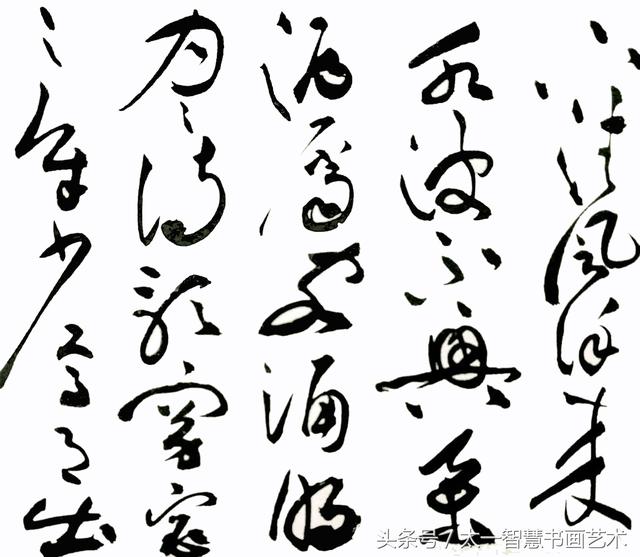 清風徐來
水波不興舉
酒屬客誦明
月之詩歌窈窕
之章少焉月出
头条号 / 太一智慧书画艺术